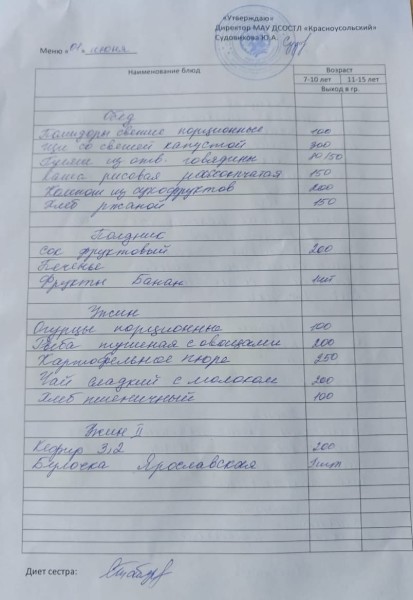 «Утверждаю»
Директор МАУ ДСОСТЛ «Красноусольский»
Судовикова Ю.А.
Меню « 01 » июня
Наименование блюд Возраст
7-10 лет 11-15 лет
Выход в гр.
Обед
Помидоры свежие порционные 100
Щи со свежей капустой 300
Гуляш из отв. говядины
Каша рисовая рассыпчатая 150
Компот из сухофруктов 200
Хлеб ржаной 150
Полдник
Сок фруктовый 200
Печенье
Фрукты Банан 1шт
Ужин
Огурцы порционные 100
Рыба тушеная с овощами 200
Картофельное пюре 250
Чай сладкий с молоком 200
Хлеб пшеничный 100
Ужин II
Кефир 3,2 200
Булочка Ярославская 1шт
Диет сестра: